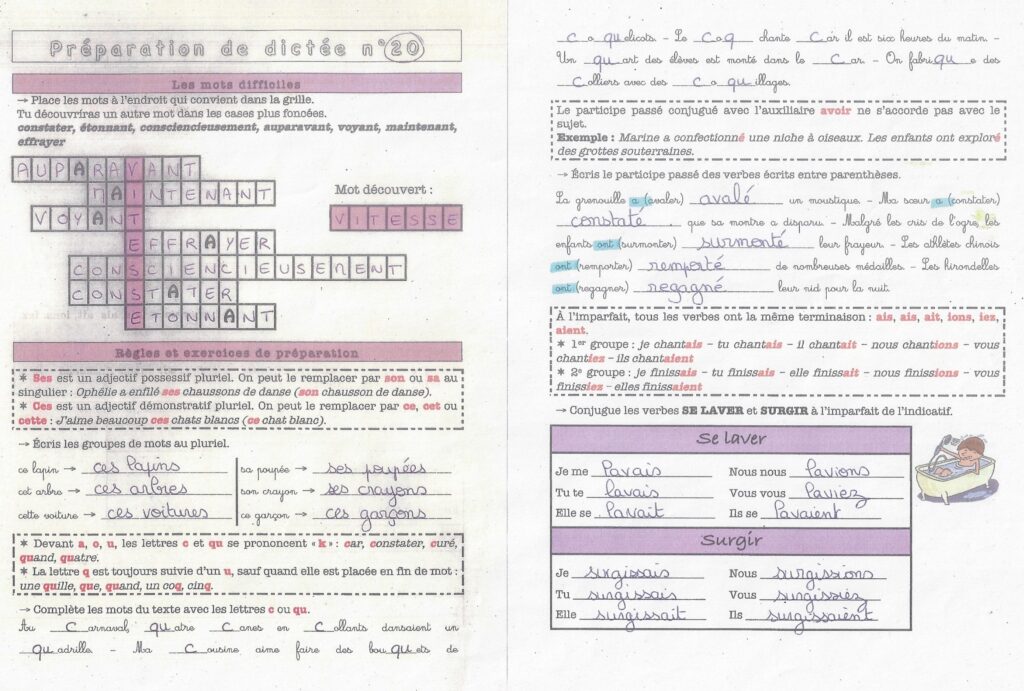 Préparation de dictée n°20
Les mots difficiles
→ Place les mots à l'endroit qui convient dans la grille.
Tu découvriras un autre mot dans les cases plus foncées.
constater, étonnant, consciencieusement, auparavant, voyant, maintenant,
effrayer
AUPARAVANT
MAINTENANT
Mot découvert :
VOYANT
VITESSE
EFFRAYER
CONSCIENCIEUSEMENT
CONSTATER
ETONNANT
Règles et exercices de préparation
* Ses est un adjectif possessif pluriel. On peut le remplacer par son ou sa au
singulier : Ophélie a enfilé ses chaussons de danse (son chausson de danse).
* Ces est un adjectif démonstratif pluriel. On peut le remplacer par ce, cet ou
cette : J'aime beaucoup ces chats blancs (ce chat blanc).
→ Écris les groupes de mots au pluriel.
ce lapin → ces lapins
sa poupée → ses poupées
cet arbre → ces arbres
son crayon → ses crayons
cette voiture → ces voitures
ce garçon → ces garçons
* Devant a, o, u, les lettres c et qu se prononcent « k » : car, constater, curé,
quand, quatre.
* La lettre q est toujours suivie d'un u, sauf quand elle est placée en fin de mot :
une quille, que, quand, un coq, cinq.
→ Complète les mots du texte avec les lettres c ou qu.
Au carnaval, quatre canes en collants dansaient un
quadrille. - Ma cousine aime faire des bouquets de
coquelicots. - Le coq chante car il est six heures du matin. -
Un quart des élèves est monté dans le car. - On fabrique des
colliers avec des coquillages.
Le participe passé conjugué avec l'auxiliaire avoir ne s'accorde pas avec le
sujet.
Exemple : Marine a confectionné une niche à oiseaux. Les enfants ont exploré
des grottes souterraines.
→ Écris le participe passé des verbes écrits entre parenthèses.
La grenouille a (avaler) avalé un moustique. - Ma sœur a (constater)
constaté que sa montre a disparu. - Malgré les cris de l'ogre, les
enfants ont (surmonter) surmonté leur frayeur. - Les athlètes chinois
ont (remporter) remporté de nombreuses médailles. - Les hirondelles
ont (regagner) regagné leur nid pour la nuit.
À l'imparfait, tous les verbes ont la même terminaison : ais, ais, ait, ions, iez,
aient.
* 1er groupe : je chantais - tu chantais - il chantait - nous chantions - vous
chantiez - ils chantaient
* 2e groupe : je finissais - tu finissais - elle finissait - nous finissions - vous
finissiez - elles finissaient
→ Conjugue les verbes SE LAVER et SURGIR à l'imparfait de l'indicatif.
Se laver
Je me lavais
Nous nous lavions
Tu te lavais
Vous vous laviez
Elle se lavait
Ils se lavaient
Surgir
Je surgissais
Nous surgissions
Tu surgissais
Vous surgissiez
Elle surgissait
Ils surgissaient